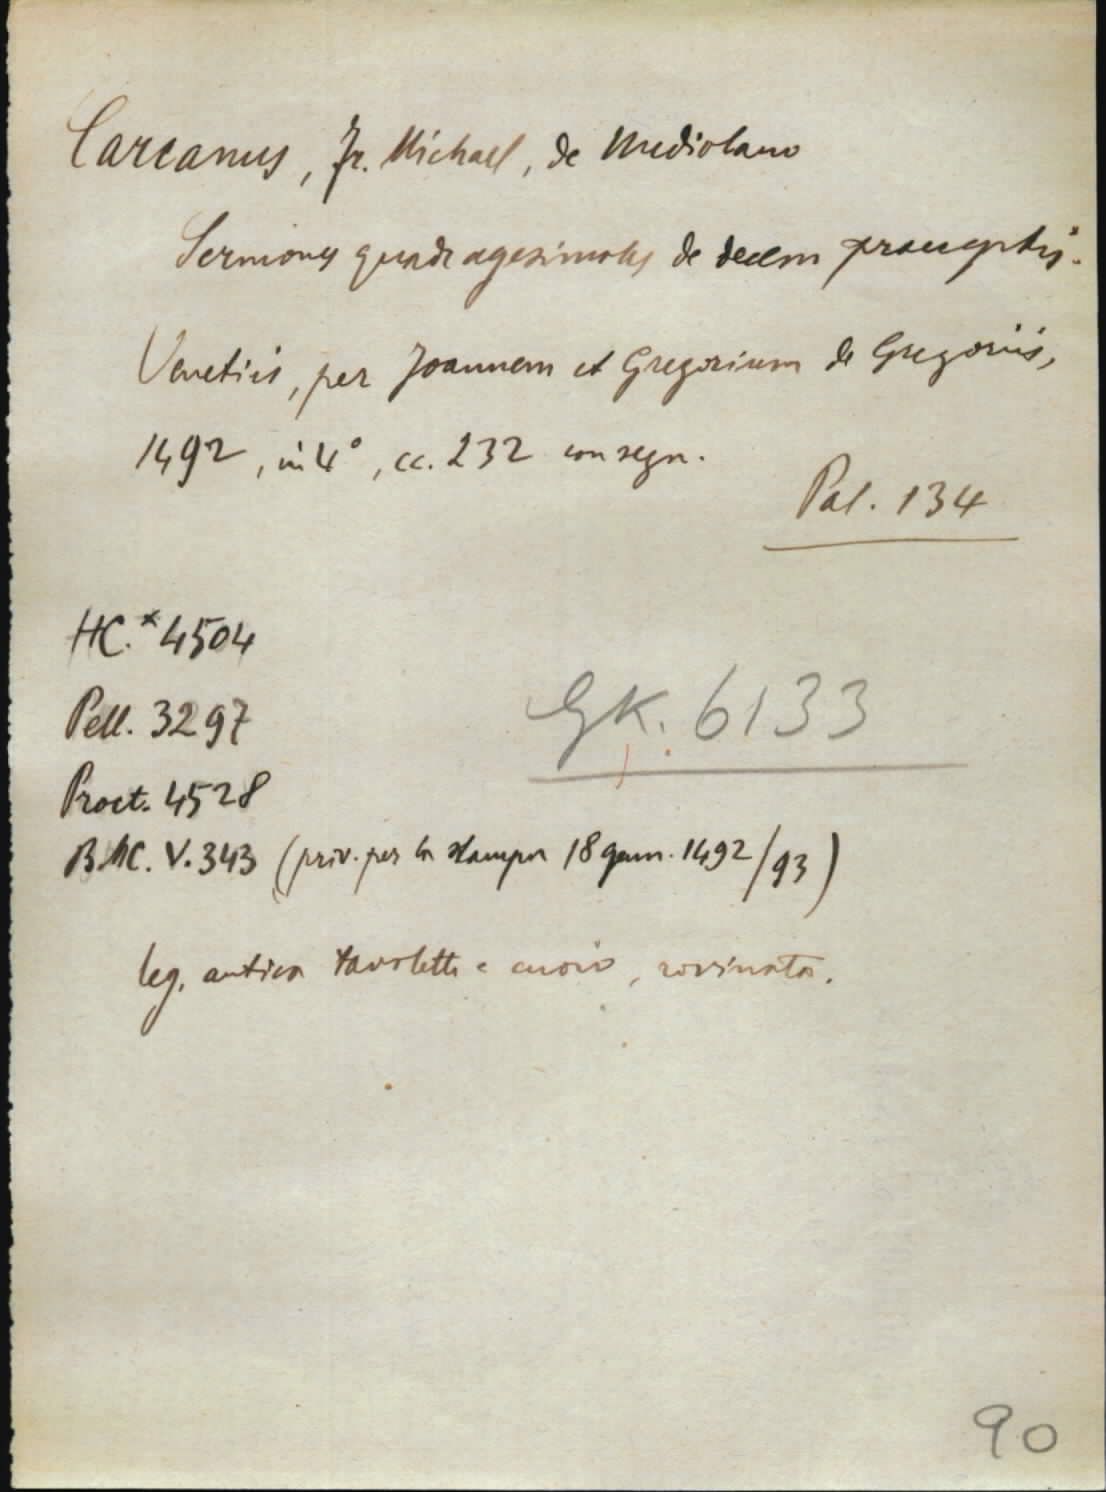 Carcanus, Fr. Michael, de Mediolano
Sermones quadragesimales de decem praeceptis.
Venetiis, per Joannem et Gregorium de Gregoriis,
1492, in 4°, cc. 232 con segn.
Pal. 134
HC.* 4504
GK. 6133
Pell. 3297
Proct. 4528
B.M.C. V. 343 (priv. per la stampa 18 genn. 1492/93)
leg. antica tavolette e cuoio, rovinata.
90